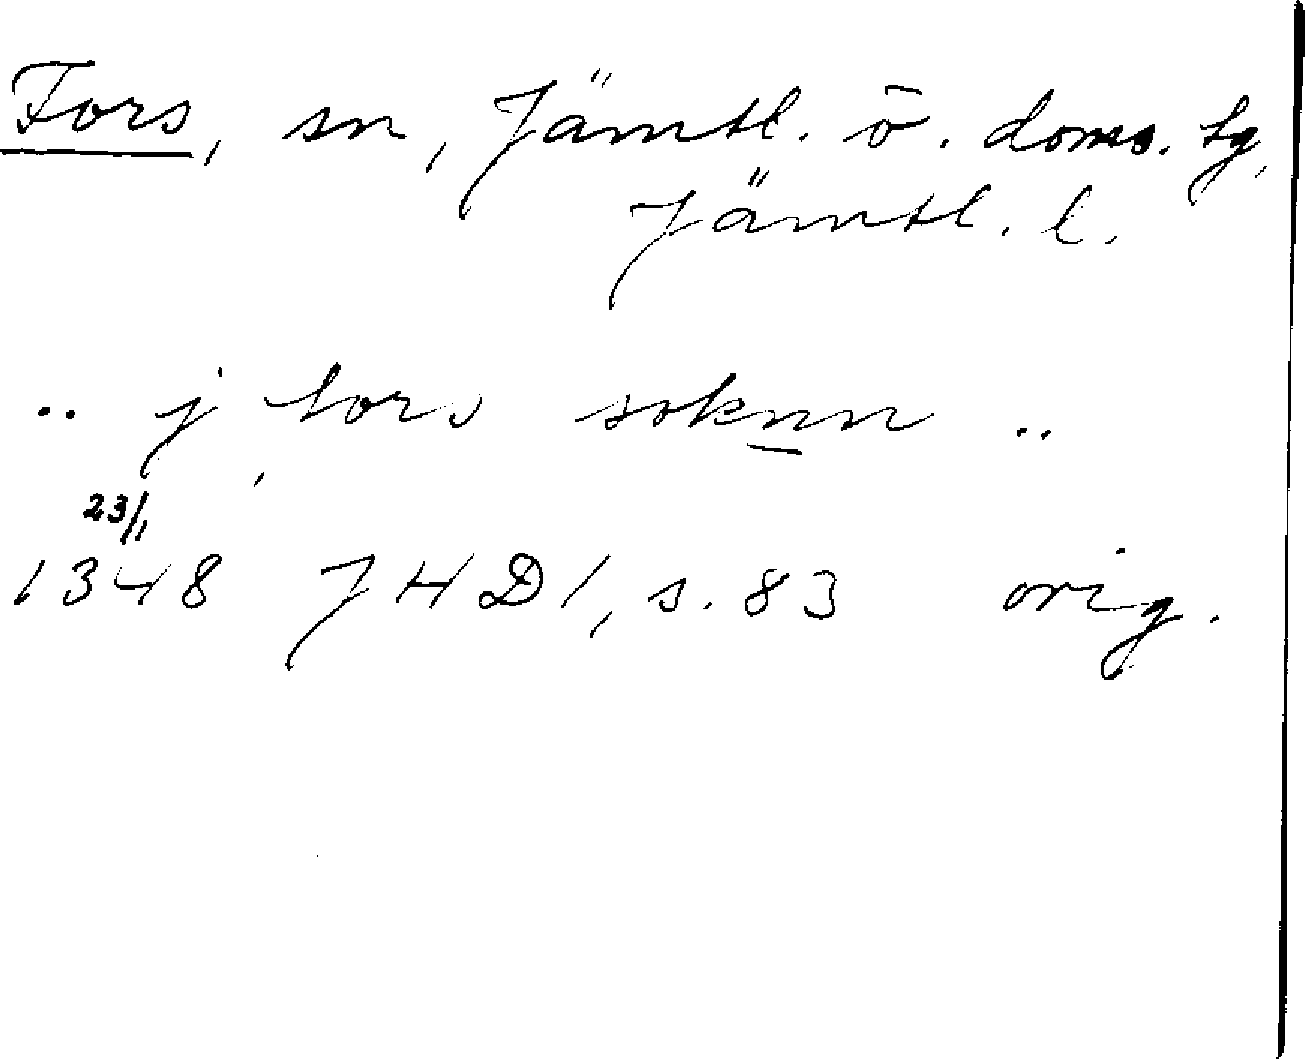 Fors, sn, Jämtl. ö. doms. tg,
Jämtl. l.
.. j fors soknn ..
23/1
1348 JHD 1, s. 83 orig.